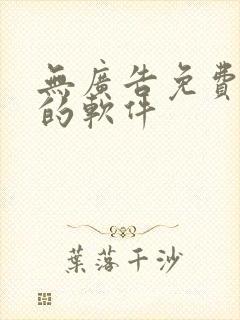 無廣告免費
的軟件
葉落千沙